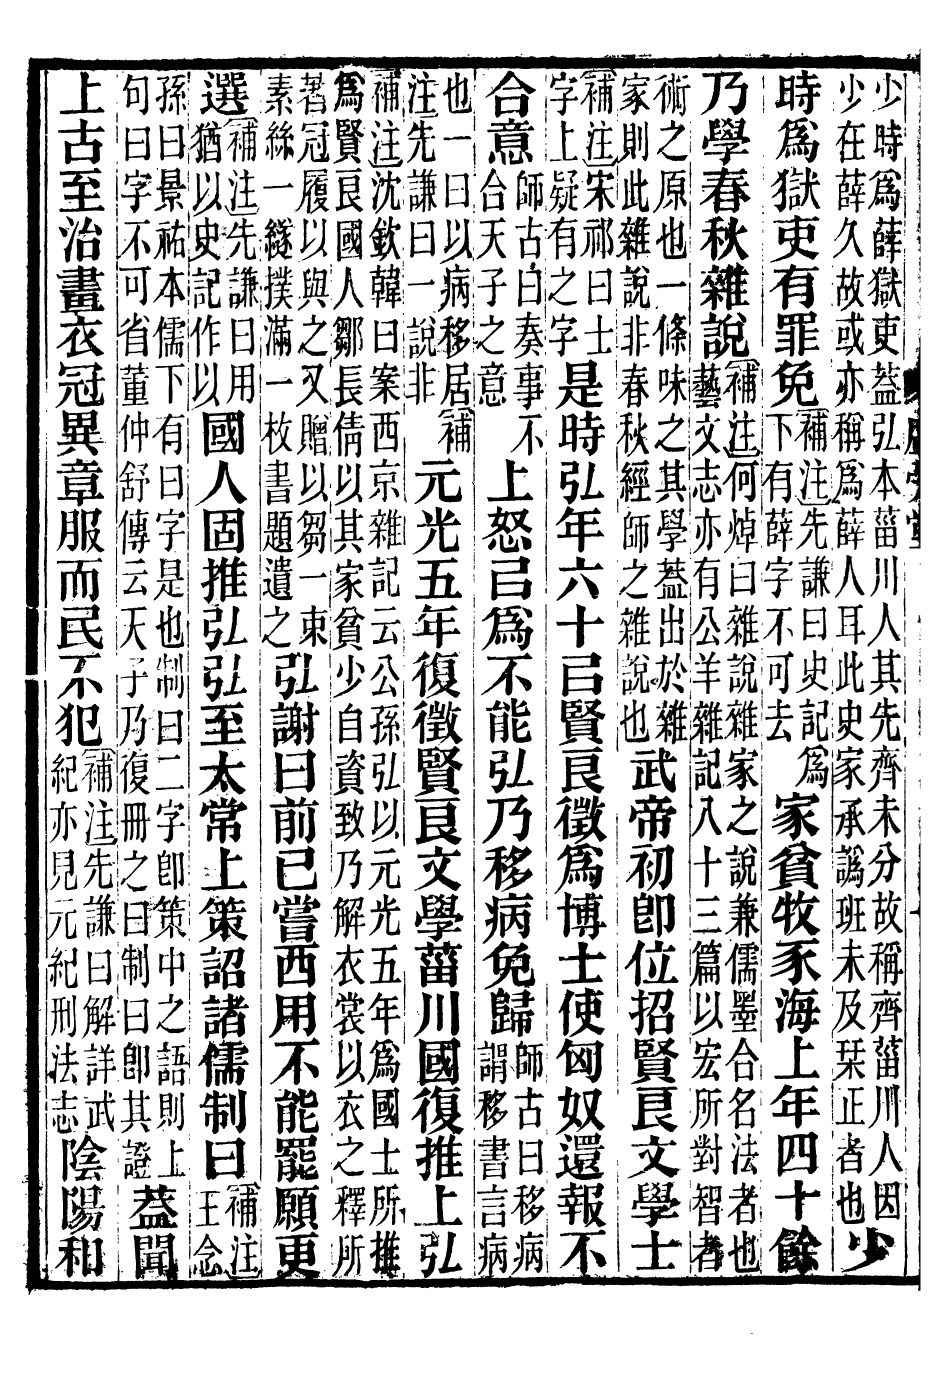 少時爲薛獄吏葢弘本菑川人其先齊未分故稱齊菑川人因
少在薛久故或亦稱爲薛人耳此史家承譌班未及栞正者也
少
時爲獄吏有罪免
補注先謙曰史記爲
下有薛字不可去
家貧牧豕海上年四十餘
乃學春秋雜說
補注何焯曰雜說雜家之說兼儒墨合名法者也
藝文志亦有公羊雜記八十三篇以宏所對智者
術之原也一條味之其學葢出於雜
家則此雜說非春秋經師之雜說也
武帝初卽位招賢良文學士
補注宋祁曰士
字上疑有之字
是時弘年六十㠯賢良徵爲博士使匈奴還報不
合意
師古曰奏事不
合天子之意
上怒㠯爲不能弘乃移病免歸
師古曰移病
謂移書言病
也一曰以病移居補
注先謙曰一說非
元光五年復徵賢良文學菑川國復推上弘
補注沈欽韓曰案西京雜記云公孫弘以元光五年爲國士所推
爲賢良國人鄒長倩以其家貧少自資致乃解衣裳以衣之釋所
著冠履以與之又贈以芻一束
素絲一襚撲滿一枚書題遺之
弘謝曰前已嘗西用不能罷願更
選
補注先謙曰用
猶以史記作以
國人固推弘弘至太常上策詔諸儒制曰
補注
王念
孫曰景祐本儒下有曰字是也制曰二字卽策中之語則上
句曰字不可省董仲舒傳云天子乃復冊之曰制曰卽其證
葢聞
上古至治畫衣冠異章服而民不犯
補注先謙曰解詳武
紀亦見元紀刑法志
陰陽和